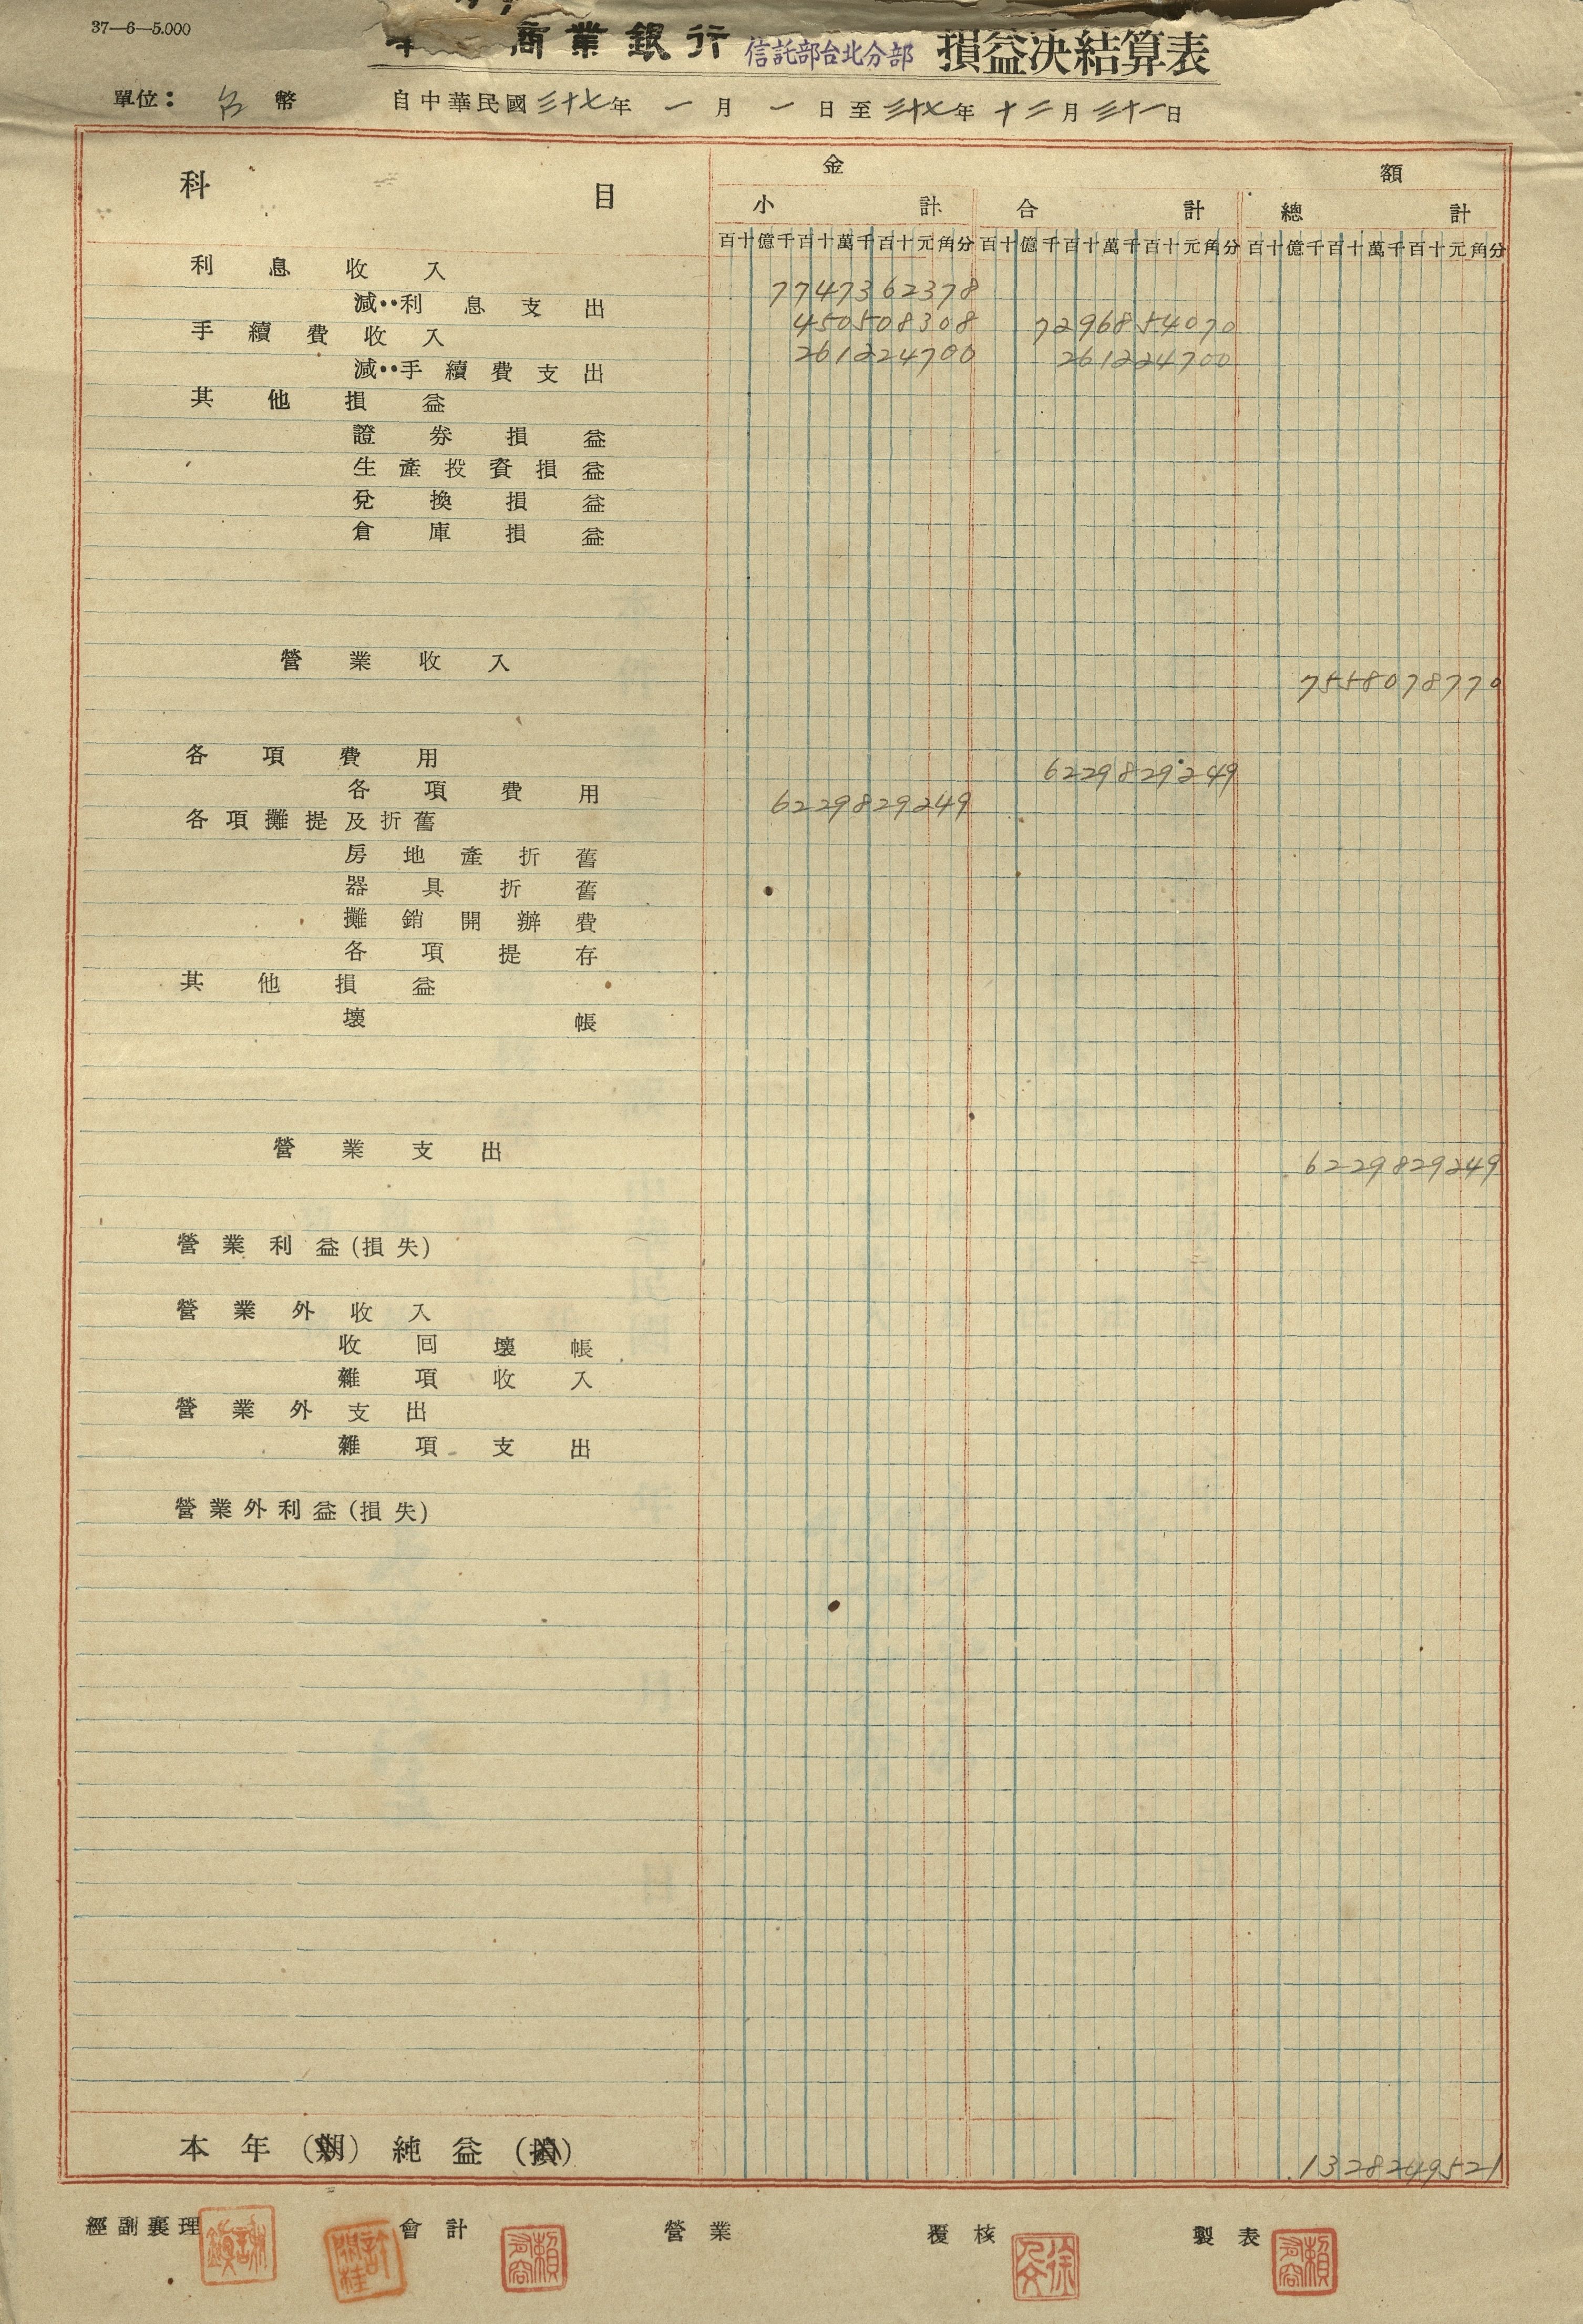 37—6—5.000
商業銀行 信託部台北分部 損益決結算表
單位：台幣 自中華民國三十七年一月一日至三十七年十二月三十一日
科目 金額
小計 合計 總計
百十億千百十萬千百十元角分 百十億千百十萬千百十元角分 百十億千百十萬千百十元角分
利息收入 7747362378
減：利息支出 450508308 7296854070
手續費收入 261224700 261224700
減：手續費支出
其他損益
證券損益
生產投資損益
兌換損益
倉庫損益
營業收入 7558078770
各項費用 6229829249
各項費用 6229829249
各項攤提及折舊
房地產折舊
器具折舊
攤銷開辦費
各項提存
其他損益
壞帳
營業支出 6229829249
營業利益(損失)
營業外收入
收回壞帳
雜項收入
營業外支出
雜項支出
營業外利益(損失)
本年(期)純益(損) 1328249521
經副襄理 會計 營業 覆核 製表